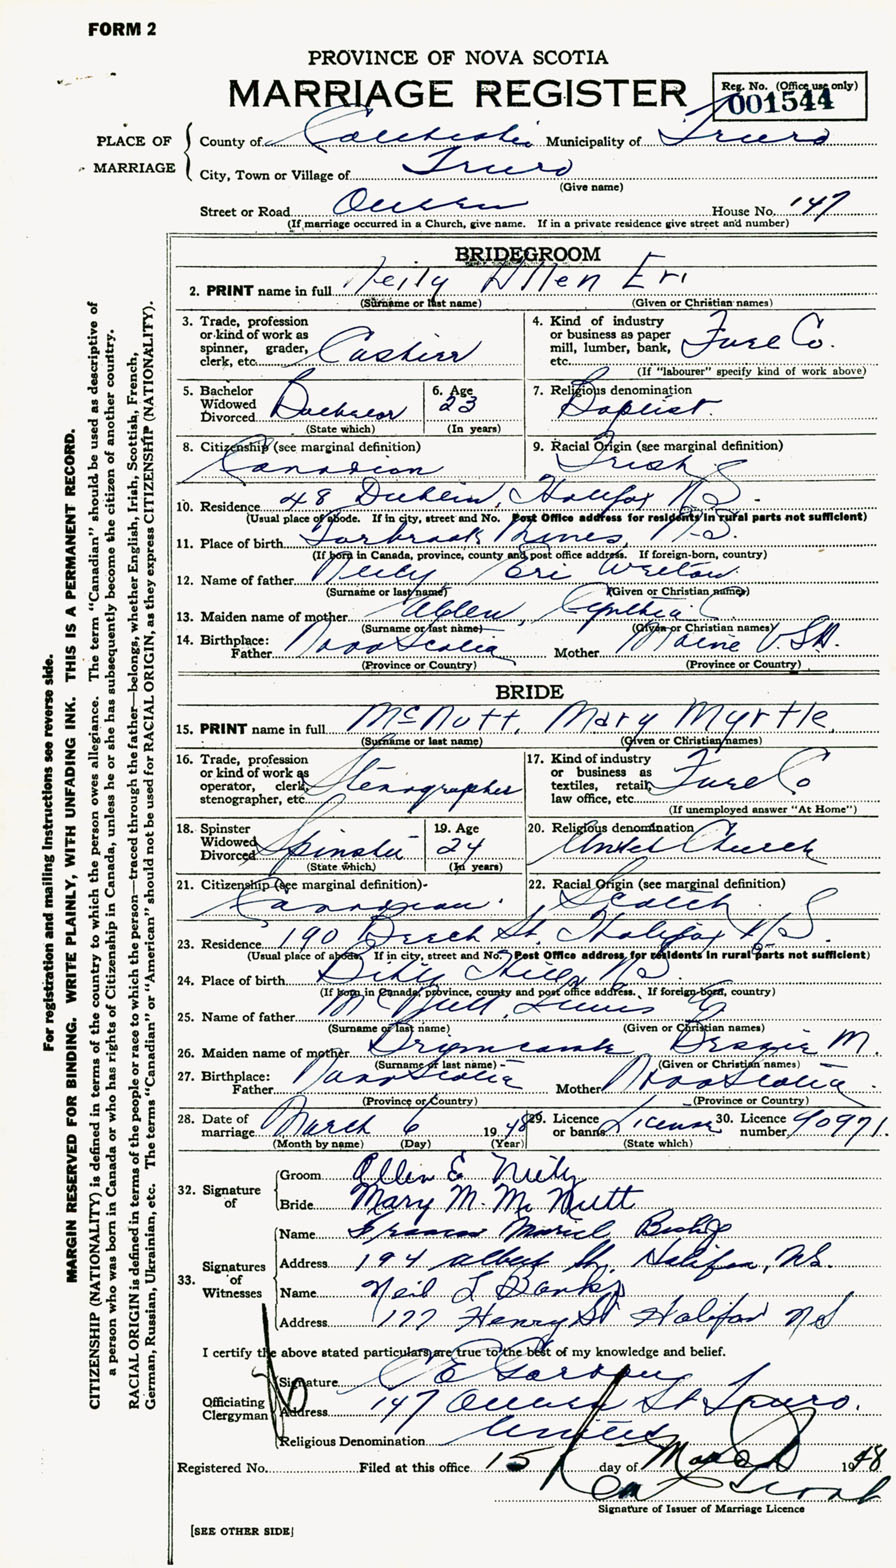 FORM 2
PROVINCE OF NOVA SCOTIA
MARRIAGE REGISTER
Reg. No. (Office use only)
001544
PLACE OF MARRIAGE
County of Colchester Municipality of Truro
City, Town or Village of Truro
(Give name)
Street or Road Queen House No. 147
(If marriage occurred in a Church, give name. If in a private residence give street and number)
BRIDEGROOM
2. PRINT name in full Neily Allen Eri
(Surname or last name) (Given or Christian names)
3. Trade, profession or kind of work as spinner, grader, clerk, etc. Cashier
4. Kind of industry or business as paper mill, lumber, bank, etc. Co.
(If "labourer" specify kind of work above)
5. Bachelor Widowed Divorced Bachelor
(State which)
6. Age 23
(In years)
7. Religious denomination Baptist.
8. Citizenship (see marginal definition) Canadian
9. Racial Origin (see marginal definition) Irish
10. Residence 48 Dublin, Halifax N.S.
(Usual place of abode. If in city, street and No. Post Office address for residents in rural parts not sufficient)
11. Place of birth Torbrook Mines, N.S.
(If born in Canada, province, county and post office address. If foreign-born, country)
12. Name of father Neily Eri Welton
(Surname or last name) (Given or Christian names)
13. Maiden name of mother Alden, Cynthia C.
(Surname or last name) (Given or Christian names)
14. Birthplace: Father Nova Scotia Mother Maine U.S.A.
(Province or Country) (Province or Country)
BRIDE
15. PRINT name in full McNutt, Mary Myrtle,
(Surname or last name) (Given or Christian names)
16. Trade, profession or kind of work as operator, clerk, stenographer, etc. Stenographer
17. Kind of industry or business as textiles, retail, law office, etc. Co
(If unemployed answer "At Home")
18. Spinster Widowed Divorced Spinster
(State which)
19. Age 24
(In years)
20. Religious denomination United Church
21. Citizenship (see marginal definition) Canadian.
22. Racial Origin (see marginal definition) Scotch.
23. Residence 190 Beech St. Halifax N.S.
(Usual place of abode. If in city, street and No. Post Office address for residents in rural parts not sufficient)
24. Place of birth Hill, N.S.
(If born in Canada, province, county and post office address. If foreign-born, country)
25. Name of father McNutt,
(Surname or last name) (Given or Christian names)
26. Maiden name of mother Bessie M.
(Surname or last name) (Given or Christian names)
27. Birthplace: Father Nova Scotia Mother Nova Scotia.
(Province or Country) (Province or Country)
28. Date of marriage March 6 1948
(Month by name) (Day) (Year)
29. Licence or banns License
(State which)
30. Licence number 90971.
32. Signature of
Groom Allen E Neily
Bride Mary M. McNutt
33. Signatures of Witnesses
Name Muriel
Address 194 Albert St. Halifax, N.S.
Name Neil L Banks
Address 177 Henry St Halifax N S
I certify the above stated particulars are true to the best of my knowledge and belief.
Officiating Clergyman
Signature C E Gordon
Address 147 Queen St Truro.
Religious Denomination United
Registered No. Filed at this office 15 day of March 1948
Signature of Issuer of Marriage Licence
[SEE OTHER SIDE]
For registration and mailing instructions see reverse side.
MARGIN RESERVED FOR BINDING. WRITE PLAINLY, WITH UNFADING INK. THIS IS A PERMANENT RECORD.
CITIZENSHIP (NATIONALITY) is defined in terms of the country to which the person owes allegiance. The term "Canadian" should be used as descriptive of
a person who was born in Canada or who has rights of Citizenship in Canada, unless he or she has subsequently become the citizen of another country.
RACIAL ORIGIN is defined in terms of the people or race to which the person—traced through the father—belongs, whether English, Irish, Scottish, French,
German, Russian, Ukrainian, etc. The terms "Canadian" or "American" should not be used for RACIAL ORIGIN, as they express CITIZENSHIP (NATIONALITY).